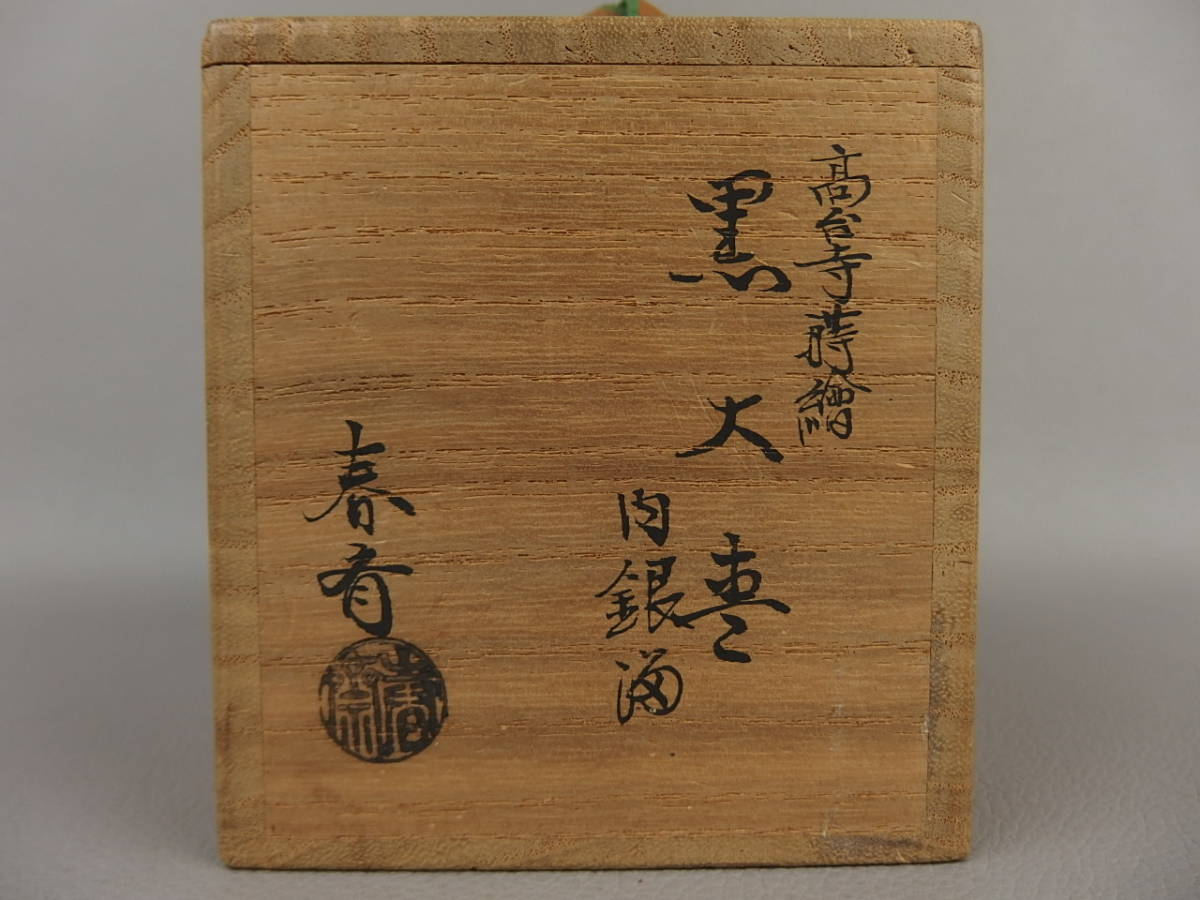 高台寺蒔繪
黒大棗
内銀溜
春斎